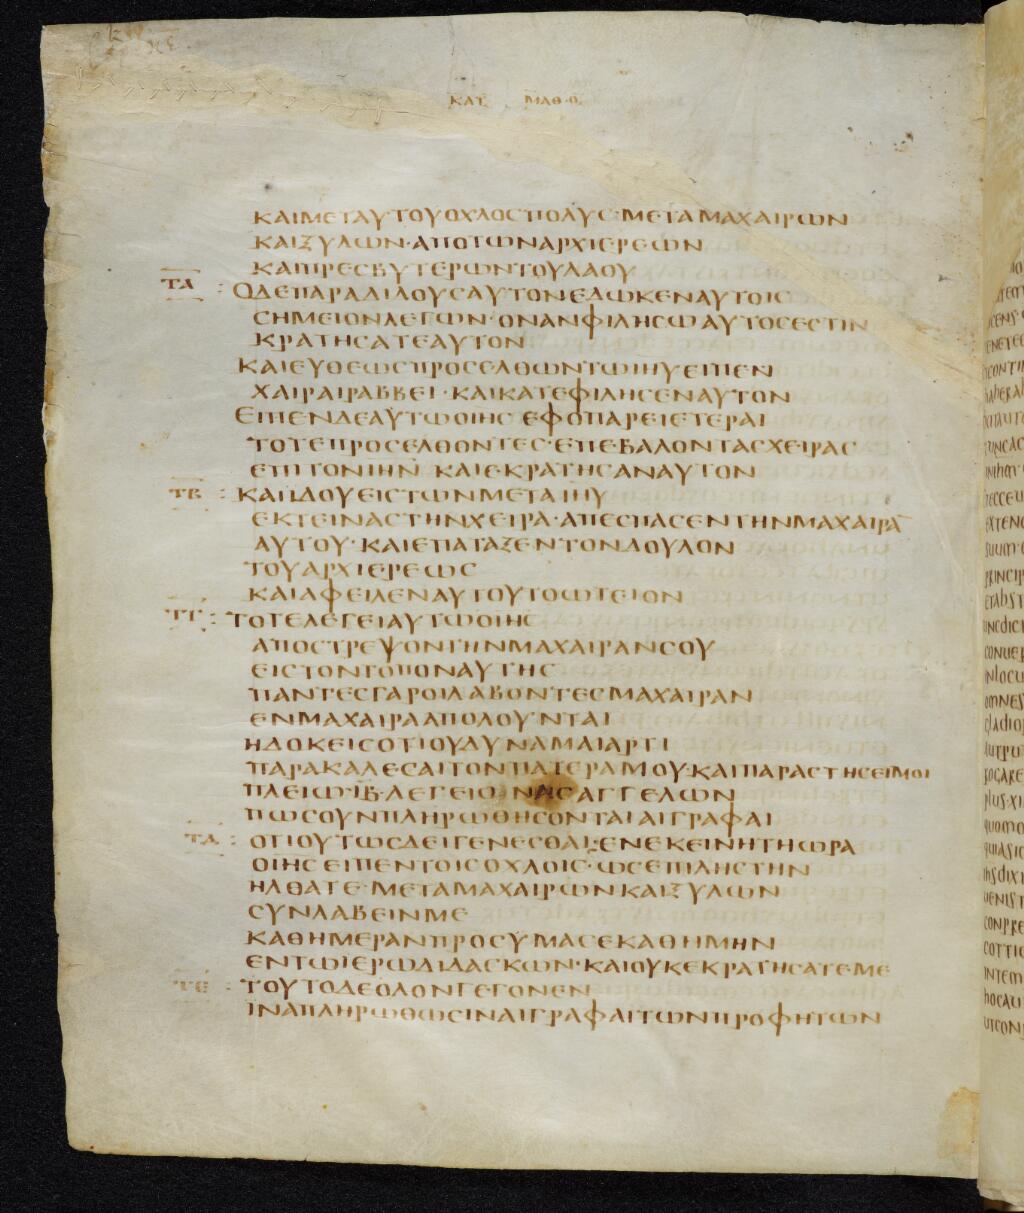 ΚΑΤ ΜΑΘΘ
ΚΑΙΜΕΤΑΥΤΟΥΟΧΛΟΣΠΟΛΥΣ·ΜΕΤΑΜΑΧΑΙΡΩΝ
ΚΑΙΞΥΛΩΝ·ΑΠΟΤΩΝΑΡΧΙΕΡΕΩΝ
ΚΑΙΠΡΕΣΒΥΤΕΡΩΝΤΟΥΛΑΟΥ
ΤΑ ΟΔΕΠΑΡΑΔΙΔΟΥΣΑΥΤΟΝΕΔΩΚΕΝΑΥΤΟΙΣ
ΣΗΜΕΙΟΝΛΕΓΩΝ·ΟΝΑΝΦΙΛΗΣΩΑΥΤΟΣΕΣΤΙΝ
ΚΡΑΤΗΣΑΤΕΑΥΤΟΝ
ΚΑΙΕΥΘΕΩΣΠΡΟΣΕΛΘΩΝΤΩΙΗΥΕΙΠΕΝ
ΧΑΙΡΑΙΡΑΒΒΕΙ·ΚΑΙΚΑΤΕΦΙΛΗΣΕΝΑΥΤΟΝ
ΕΙΠΕΝΔΕΑΥΤΩΟΙΗΣ ΕΦΟΠΑΡΕΙΕΤΕΡΑΙ
ΤΟΤΕΠΡΟΣΕΛΘΟΝΤΕΣ·ΕΠΕΒΑΛΟΝΤΑΣΧΕΙΡΑΣ
ΕΠΙΤΟΝΙΗΝ ΚΑΙΕΚΡΑΤΗΣΑΝΑΥΤΟΝ
ΤΒ : ΚΑΙΙΔΟΥΕΙΣΤΩΝΜΕΤΑΙΗΥ
ΕΚΤΕΙΝΑΣΤΗΝΧΕΙΡΑ·ΑΠΕΣΠΑΣΕΝΤΗΝΜΑΧΑΙΡΑ̅
ΑΥΤΟΥ·ΚΑΙΕΠΑΤΑΞΕΝΤΟΝΔΟΥΛΟΝ
ΤΟΥΑΡΧΙΕΡΕΩΣ
ΚΑΙΑΦΕΙΛΕΝΑΥΤΟΥΤΟΩΤΕΙΟΝ
ΤΓ : ΤΟΤΕΛΕΓΕΙΑΥΤΩΟΙΗΣ
ΑΠΟΣΤΡΕΨΟΝΤΗΝΜΑΧΑΙΡΑΝΣΟΥ
ΕΙΣΤΟΝΤΟΠΟΝΑΥΤΗΣ
ΠΑΝΤΕΣΓΑΡΟΙΛΑΒΟΝΤΕΣΜΑΧΑΙΡΑΝ
ΕΝΜΑΧΑΙΡΑΑΠΟΛΟΥΝΤΑΙ
ΗΔΟΚΕΙΣΟΤΙΟΥΔΥΝΑΜΑΙΑΡΤΙ
ΠΑΡΑΚΑΛΕΣΑΙΤΟΝΠΑΤΕΡΑΜΟΥ·ΚΑΙΠΑΡΑΣΤΗΣΕΙΜΟΙ
ΠΛΕΙΩ·ΙΒ·ΛΕΓΕΙΩΝΑΣΑΓΓΕΛΩΝ
ΠΩΣΟΥΝΠΛΗΡΩΘΗΣΟΝΤΑΙΑΙΓΡΑΦΑΙ
ΤΔ : ΟΤΙΟΥΤΩΣΔΕΙΓΕΝΕΣΘΑΙ:ΕΝΕΚΕΙΝΗΤΗΩΡΑ
ΟΙΗΣΕΙΠΕΝΤΟΙΣΟΧΛΟΙΣ·ΩΣΕΠΙΛΗΣΤΗΝ
ΗΛΘΑΤΕ·ΜΕΤΑΜΑΧΑΙΡΩΝΚΑΙΞΥΛΩΝ
ΣΥΝΛΑΒΕΙΝΜΕ
ΚΑΘΗΜΕΡΑΝΠΡΟΣΥΜΑΣΕΚΑΘΗΜΗΝ
ΕΝΤΩΙΕΡΩΔΙΔΑΣΚΩΝ·ΚΑΙΟΥΚΕΚΡΑΤΗΣΑΤΕΜΕ
ΤΕ : ΤΟΥΤΟΔΕΟΛΟΝΓΕΓΟΝΕΝ
ΙΝΑΠΛΗΡΩΘΩΣΙΝΑΙΓΡΑΦΑΙΤΩΝΠΡΟΦΗΤΩΝ